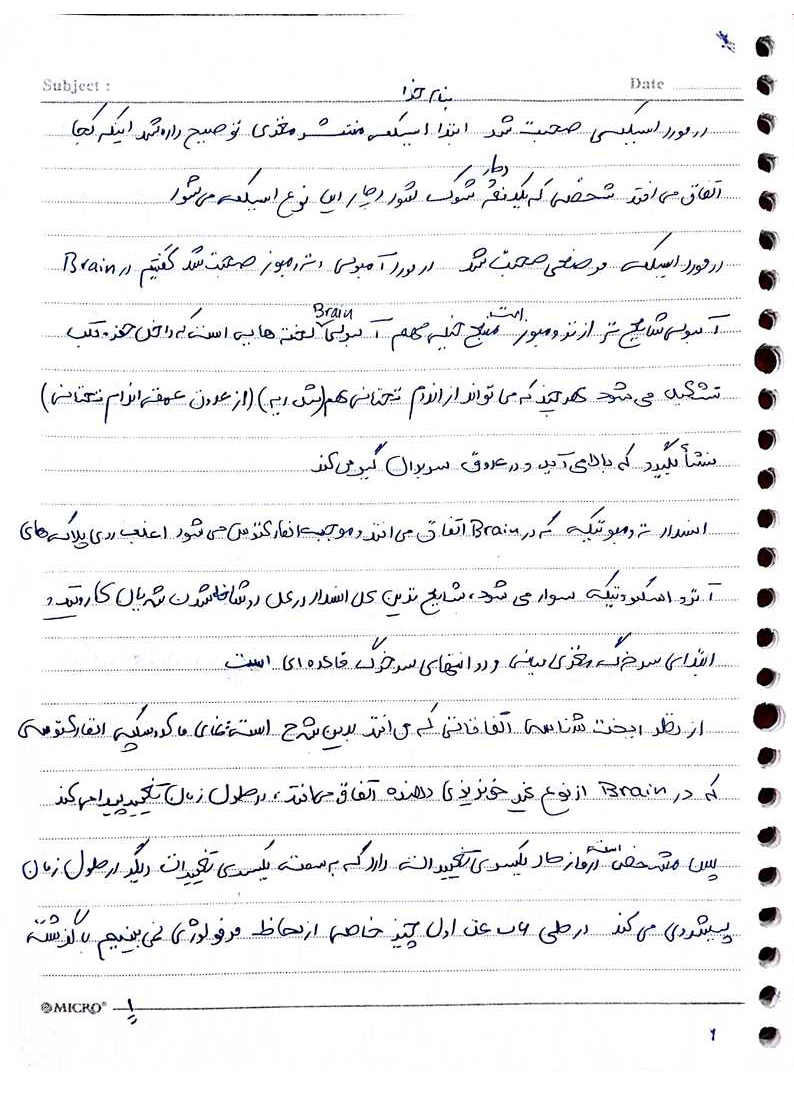 Subject :
Date
بنام خدا
در مورد اسکیمی صحبت شد ابتدا اسکمی منتشر مغزی توضیح داده شد اینکه کجا
اتفاق می افتد شخصی که یکدفعه دچار شوک شود دچار این نوع اسکمی می شود
در مورد اسکمی موضعی صحبت شد در مورد آمبولی و ترومبوز صحبت شد گفتیم در Brain
آمبولی شایع تر از ترومبوز است منبع خیلی مهم آمبولی Brain لخته هایی است که داخل حفره قلب
تشکیل می شود هر چند که می تواند از اندام تحتانی هم (مثل ریه) (از عروق عمقی اندام تحتانی)
منشأ بگیرد که بالا می آید و در عروق سربرال گیر می کند
انسداد ترومبوتیک که در Brain اتفاق می افتد و موجب انفارکتوس می شود اغلب روی پلاک های
آترواسکلروتیک سوار می شود، شایع ترین محل انسداد در محل دو شاخه شدن شریان کاروتید و
ابتدای سرخرگ مغزی میانی و در انتهای سرخرگ قاعده ای است
از نظر آسیب شناسی اتفاقاتی که می افتد بدین شرح است نمای ماکروسکوپی انفارکتوسی
که در Brain از نوع غیر خونریزی دهنده اتفاق می افتد، در طول زمان تغییر پیدا می کند
پس مشخص است از یکسری تغییرات حاد دارد که به سمت یکسری تغییرات دیگر در طول زمان
پیشروی می کند در طی ساعت اول چیز خاصی از لحاظ مورفولوژی نمی بینیم با گذشت
MICRO
1